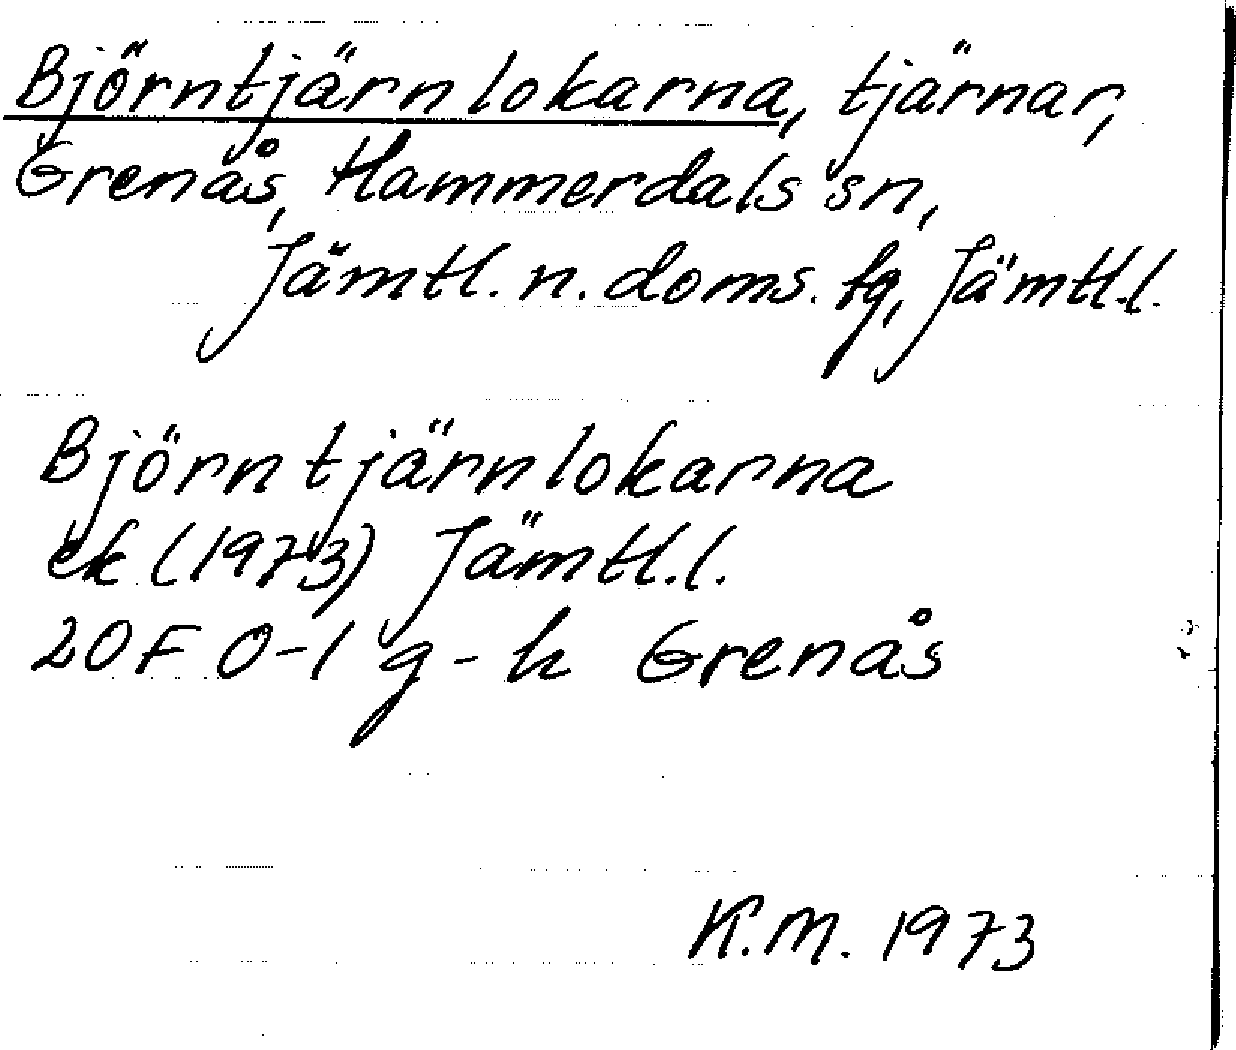 Björntjärnlokarna, tjärnar,
Grenås, Hammerdals sn,
Jämtl. n. doms. fg, Jämtl.l.
Björntjärnlokarna
ek (1973) Jämtl.l.
20F 0-1 g-h Grenås
K.M. 1973